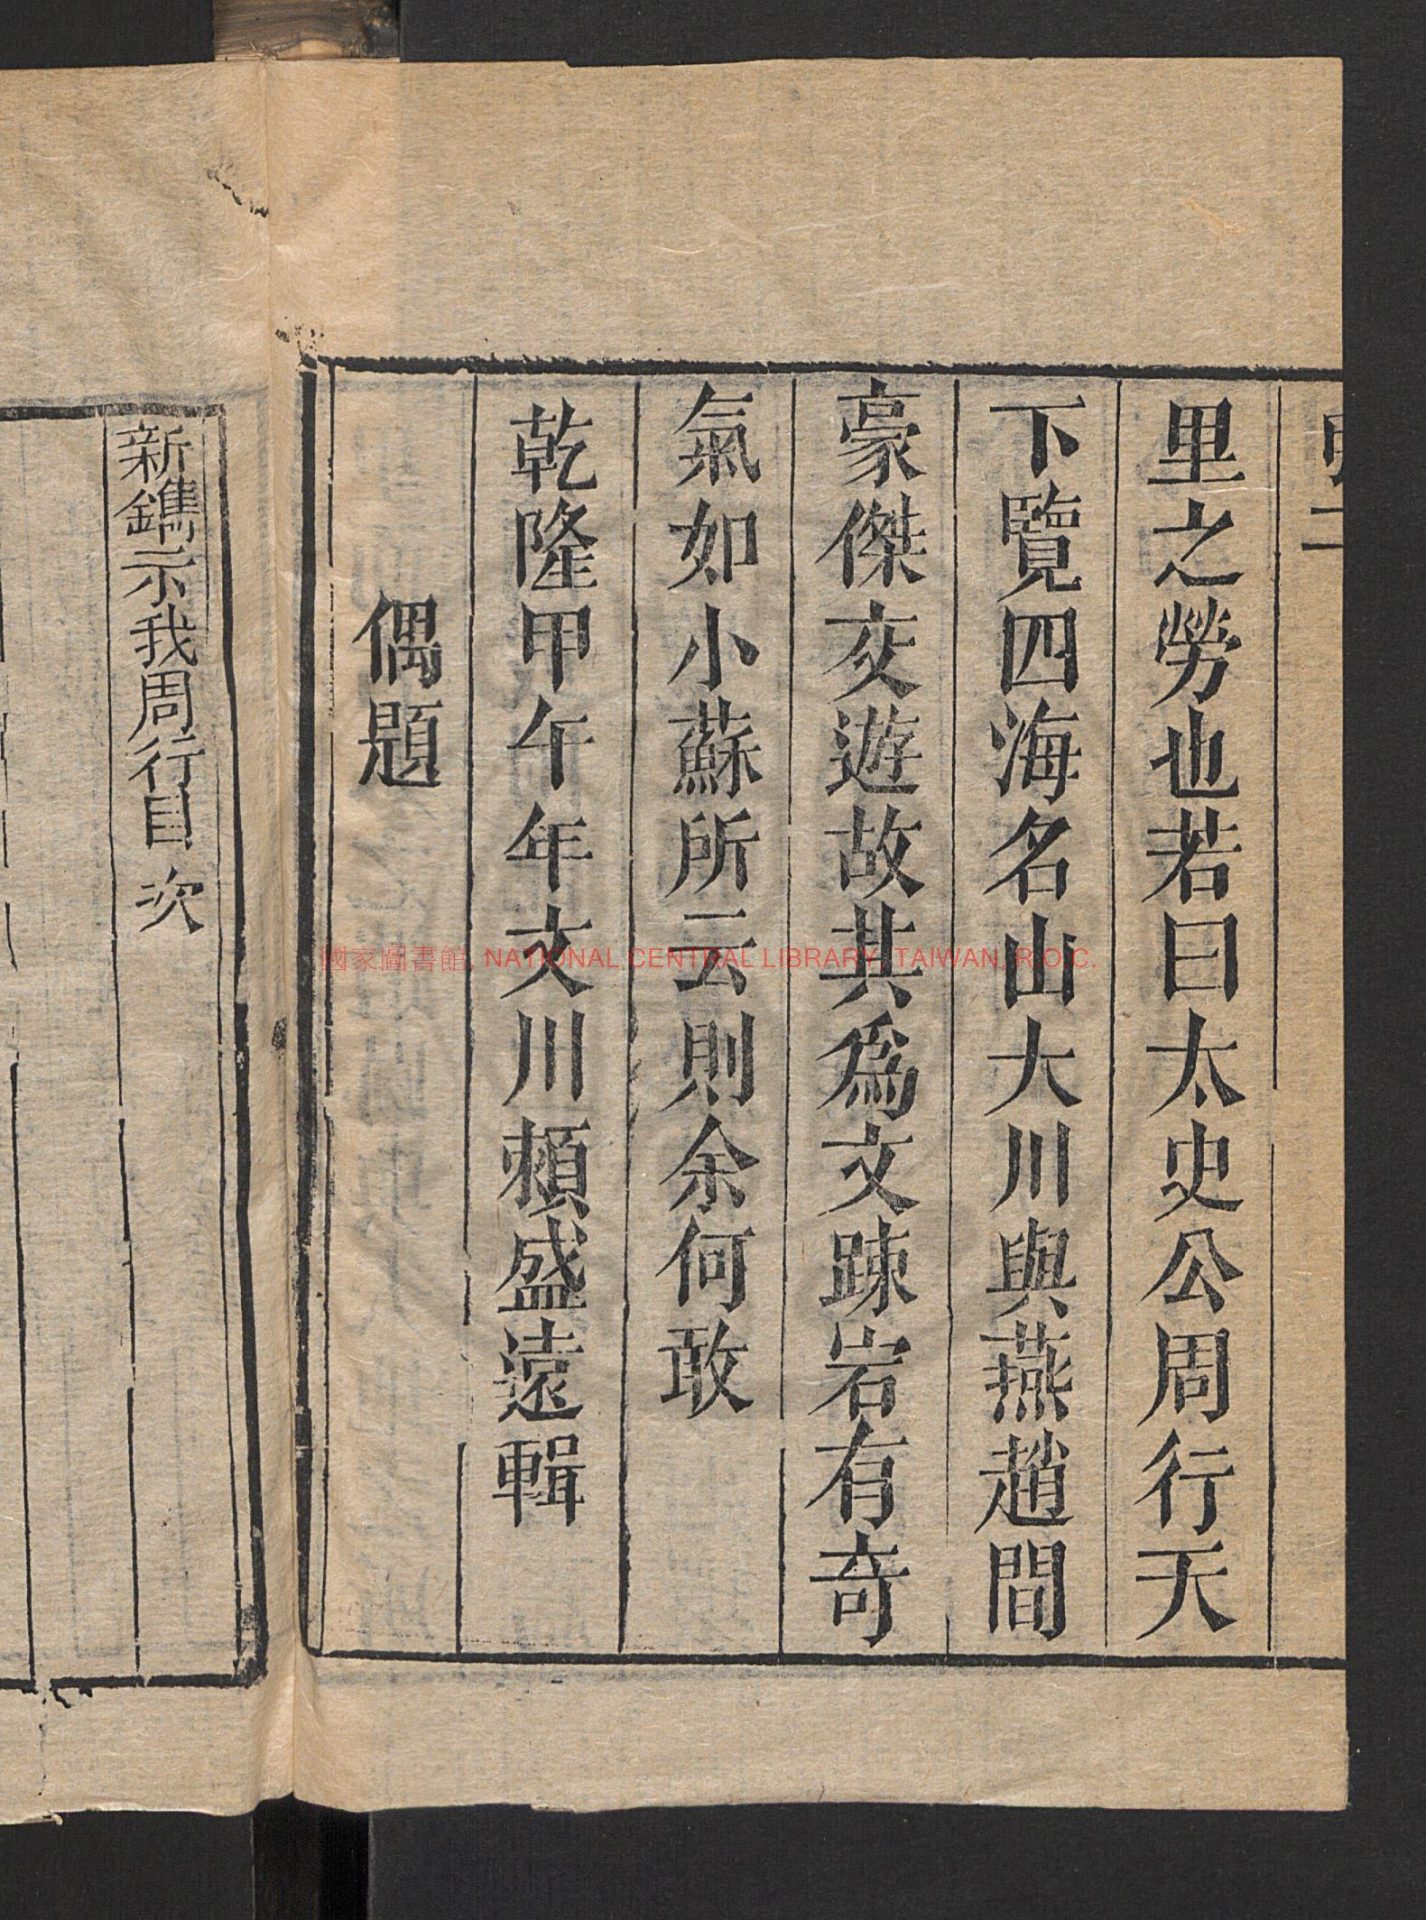 里之勞也若曰太史公周行天
下覽四海名山大川與燕趙間
豪傑交遊故其為文踈岩有奇
氣如小蘇所云則余何敢
乾隆甲午年文川賴盛遠輯
偶題
新鐫示我周行目次
國家圖書館, NATIONAL CENTRAL LIBRARY, TAIWAN, R.O.C.